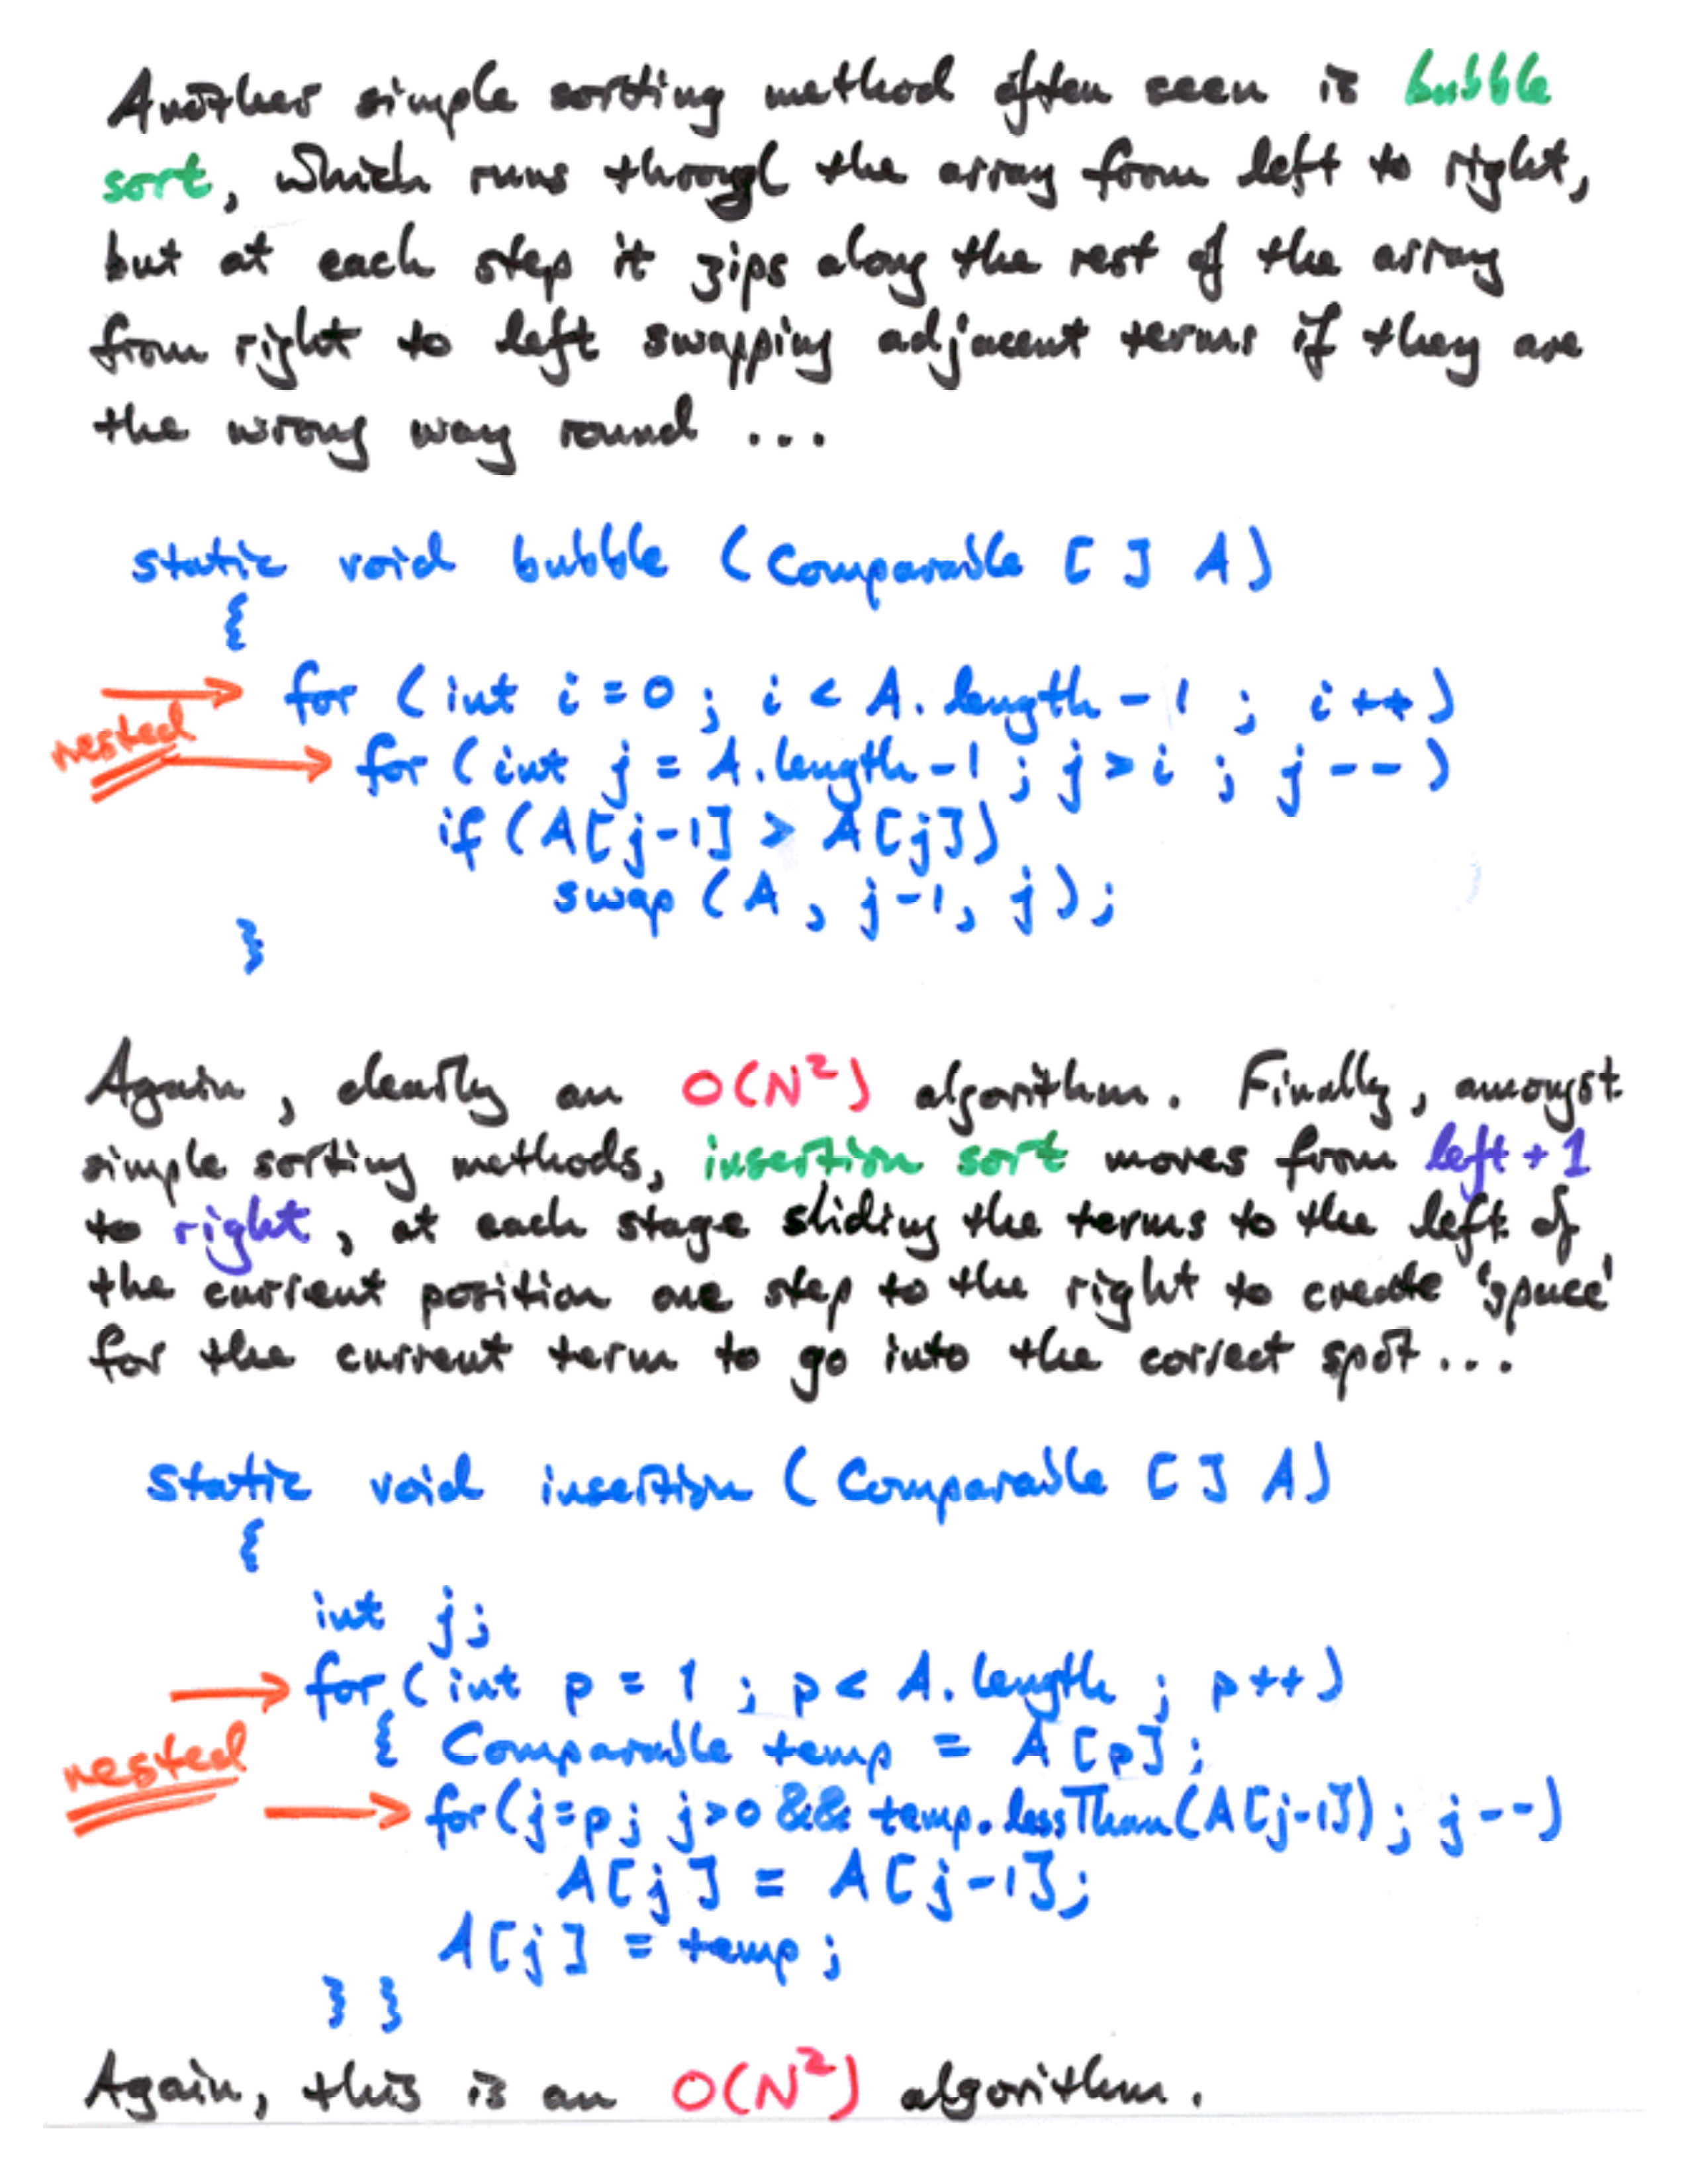 Another simple sorting method often seen is bubble
sort, which runs through the array from left to right,
but at each step it zips along the rest of the array
from right to left swapping adjacent terms if they are
the wrong way round ...
static void bubble (Comparable [ ] A)
{
for (int i = 0 ; i < A. length - 1 ; i ++)
nested
for (int j = A. length - 1 ; j > i ; j --)
if (A[j-1] > A[j])
swap (A, j-1, j);
}
Again, clearly an O(N²) algorithm. Finally, amongst
simple sorting methods, insertion sort moves from left + 1
to right, at each stage sliding the terms to the left of
the current position one step to the right to create 'space'
for the current term to go into the correct spot ...
static void insertion (Comparable [ ] A)
{
int j;
for (int p = 1 ; p < A. length ; p ++)
{ Comparable temp = A [p] ;
nested
for (j=p; j>0 && temp.lessThan(A[j-1]) ; j --)
A[j] = A[j-1];
A[j] = temp ;
} }
Again, this is an O(N²) algorithm.